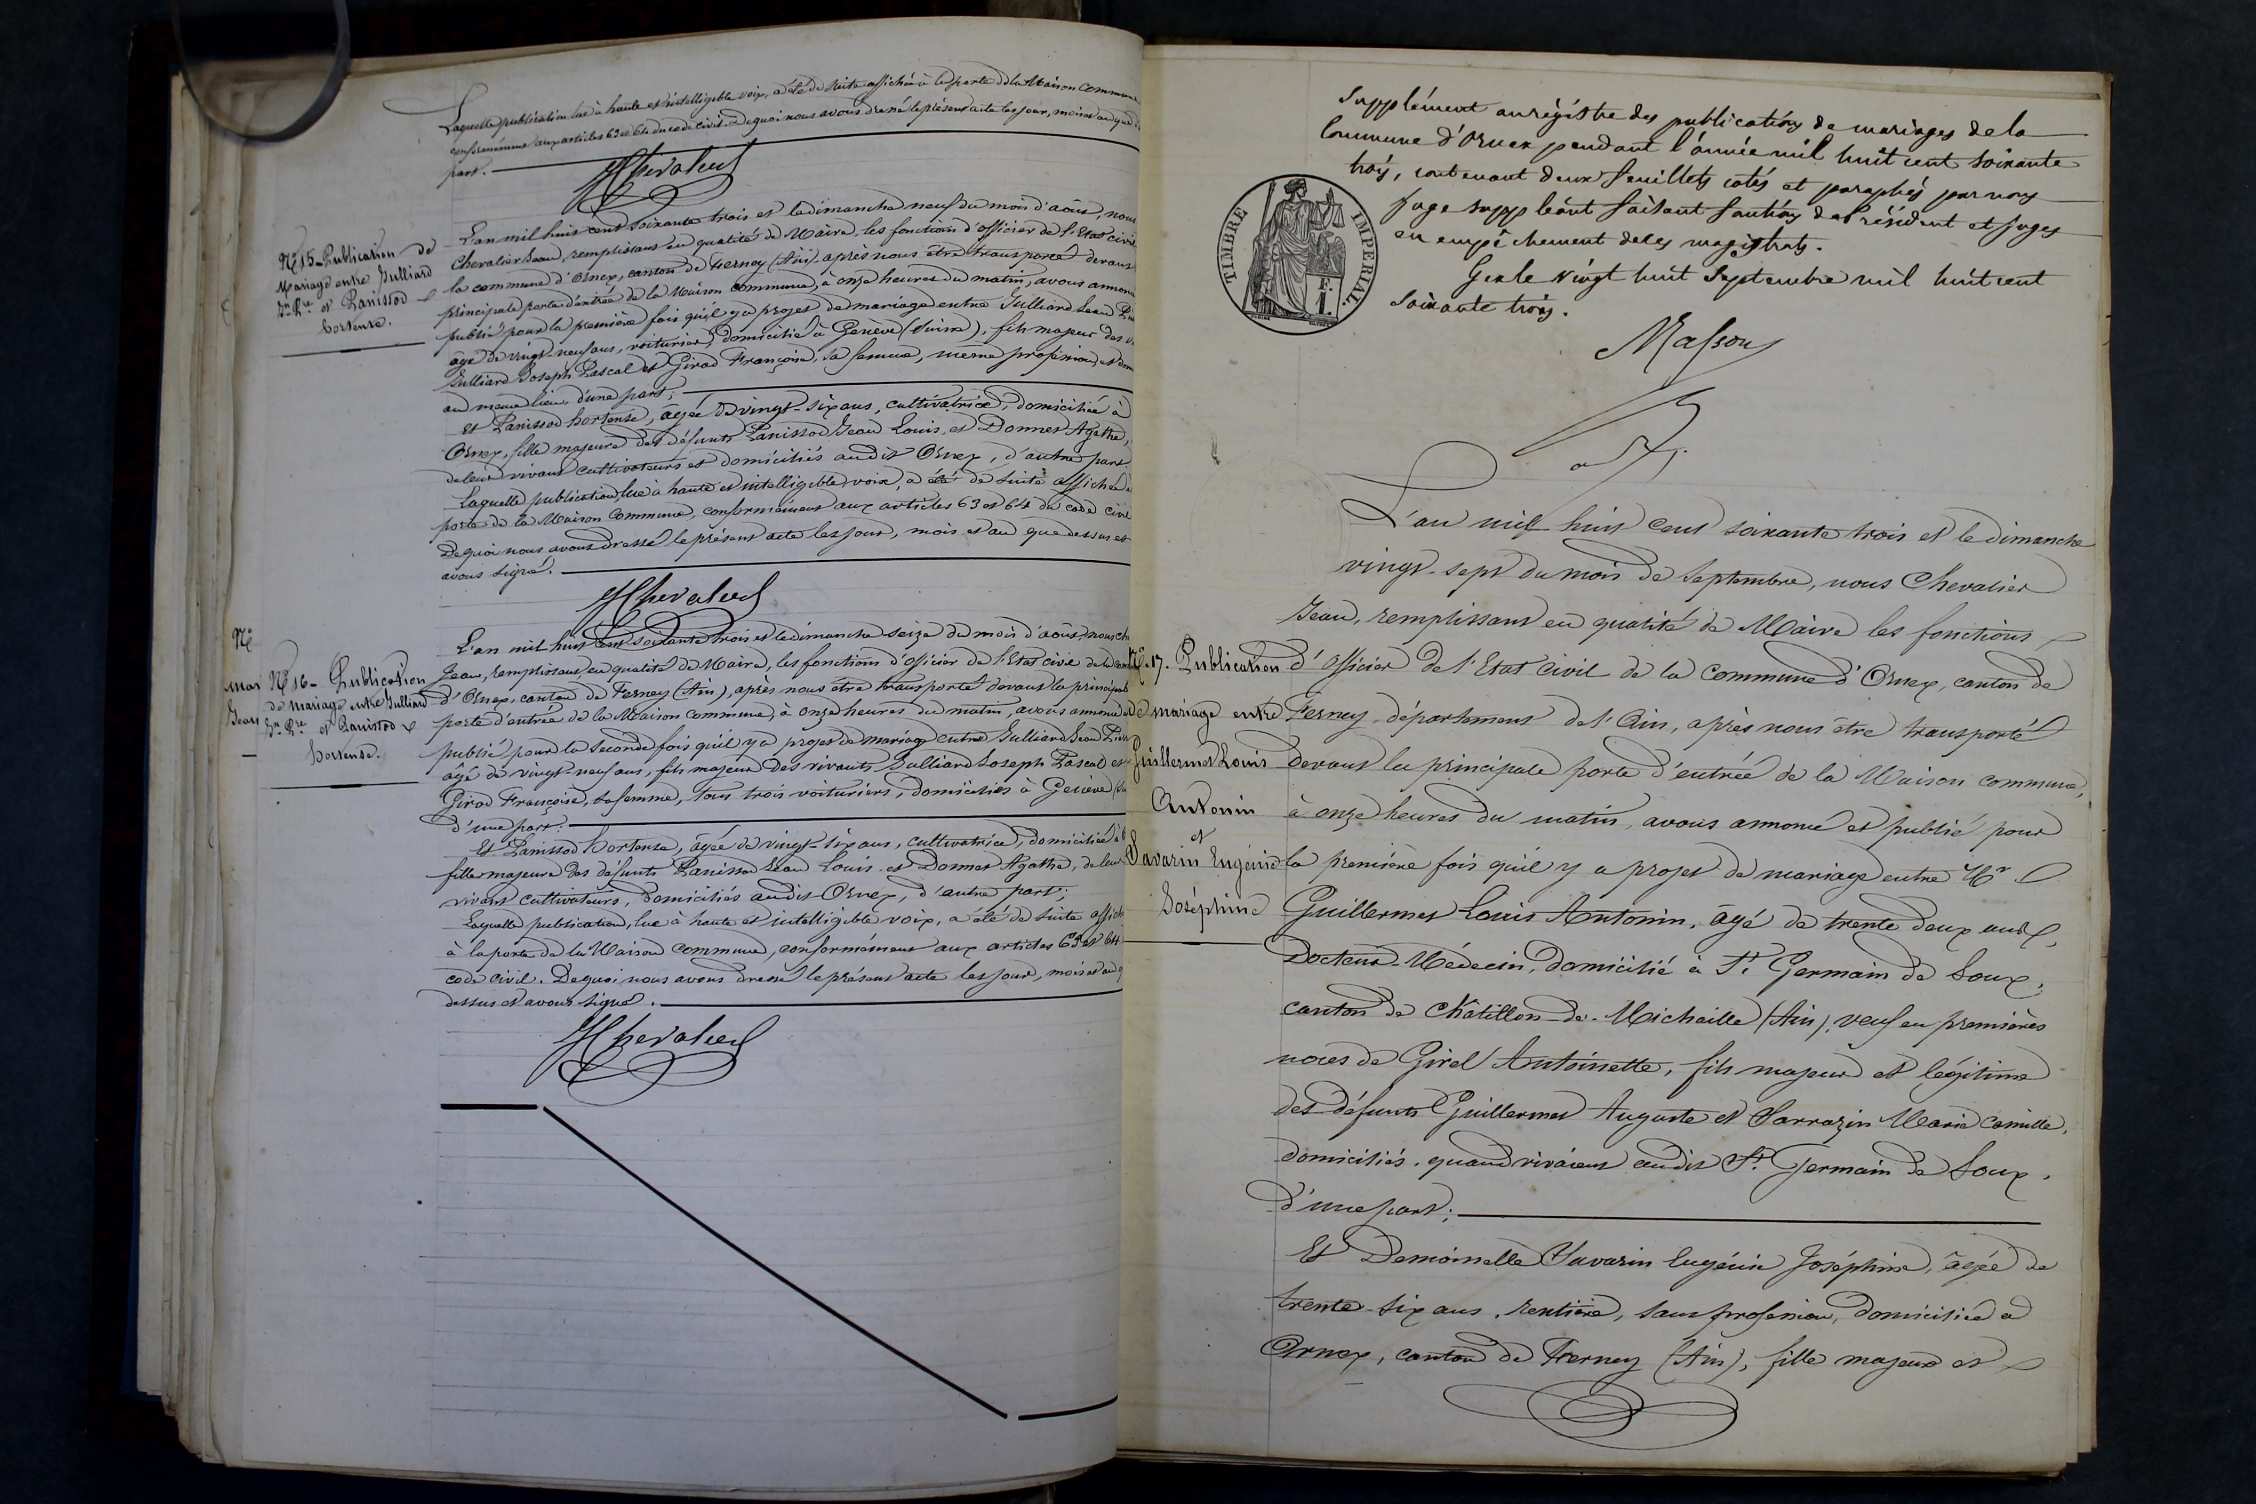 Laquelle publication lue à haute et intelligible voix, a été de suite affichée à la porte de la Maison Commune
conformément aux articles 63 et 64 du code civil. De quoi nous avons dressé le présent acte les jour, mois et an que
part.
JChevalier
N° 15 - Publication de
Mariage entre Julliard
Jn Pre et Panissod
hortense.
L'an mil huit cent soixante trois et le dimanche neuf du mois d'août, nous
Chevalier Jean, remplissant en qualité de Maire, les fonctions d'officier de l'Etat civil
la commune d'Ornex, canton de Ferney (Ain), après nous être transporté devant
principale porte d'entrée de la Maison commune, à onze heures du matin, avons annoncé
publié pour la première fois qu'il y a projet de mariage entre Julliard Jean
âgé de vingt-neuf ans, voiturier, domicilié à Genève (Suisse), fils majeur des
Julliard Joseph Pascal et Girod Françoise, sa femme, même profession, et
au même lieu, d'une part;
et Panissod hortense, âgée de vingt-six ans, cultivatrice, domiciliée à
Ornex, fille majeure des défunts Panissod Jean Louis et Donnet Agathe,
de leur vivant cultivateurs et domiciliés audit Ornex, d'autre part.
Laquelle publication, lue à haute et intelligible voix, a été de suite affichée
porte de la Maison Commune, conformément aux articles 63 et 64 du code civil
De quoi nous avons dressé le présent acte les jour, mois et an que dessus et
avons signé.
JChevalier
N°
Mar
Jean
N° 16 - Publication
de mariage entre Julliard
Jn Pre et Panissod
hortense.
L'an mil huit cent soixante trois et le dimanche seize du mois d'août, nous
Jean, remplissant en qualité de Maire, les fonctions d'officier de l'Etat civil de la
d'Ornex, canton de Ferney (Ain), après nous être transporté devant la principale
porte d'entrée de la Maison commune, à onze heures du matin, avons annoncé
publié pour la seconde fois qu'il y a projet de mariage entre Julliard Jean
âgé de vingt-neuf ans, fils majeur des vivants Julliard Joseph Pascal et
Girod Françoise, sa femme, tous trois voituriers, domiciliés à Genève
d'une part;
Et Panissod hortense, âgée de vingt-six ans, cultivatrice, domiciliée à
fille majeure des défunts Panissod Jean Louis et Donnet Agathe, de leur
vivant cultivateurs, domiciliés audit Ornex, d'autre part;
Laquelle publication, lue à haute et intelligible voix, a été de suite
à la porte de la Maison commune, conformément aux articles 63 et 64
code civil. De quoi nous avons dressé le présent acte les jour, mois et an
dessus et avons signé.
JChevalier
Supplément au régistre des publications de mariages de la
Commune d'Ornex pendant l'année mil huit cent soixante
trois, contenant deux feuillets cotés et paraphés par nous
Juge suppléant faisant fonctions de Président et Juges
en empêchement de ces magistrats.
Gex le vingt huit Septembre mil huit cent
soixante trois.
TIMBRE IMPERIAL.
1 F.
Masson
L'an mil huit cent soixante trois et le dimanche
vingt-sept du mois de Septembre, nous Chevalier
Jean, remplissant en qualité de Maire les fonctions
N° 17. Publication
de mariage entre
Guillermet Louis
Antonin
et
Savarin Eugénie
Joséphine
d'officier de l'Etat civil de la commune d'Ornex, canton de
Ferney département de l'Ain, après nous être transporté
devant la principale porte d'entrée de la Maison commune,
à onze heures du matin, avons annoncé et publié pour
la première fois qu'il y a projet de mariage entre Mr
Guillermet Louis Antonin, âgé de trente deux ans,
Docteur-Médecin, domicilié à St Germain de Joux,
canton de Châtillon-de-Michaille (Ain), veuf en premières
noces de Girel Antoinette, fils majeur et légitime
des défunts Guillermet Auguste et Sarrazin Marie Camille,
domiciliés, quand vivaient audit St Germain de Joux,
d'une part;
Et Demoiselle Savarin Eugénie Joséphine, âgée de
trente six ans, rentière, sans profession, domiciliée à
Ornex, canton de Ferney (Ain), fille majeure et